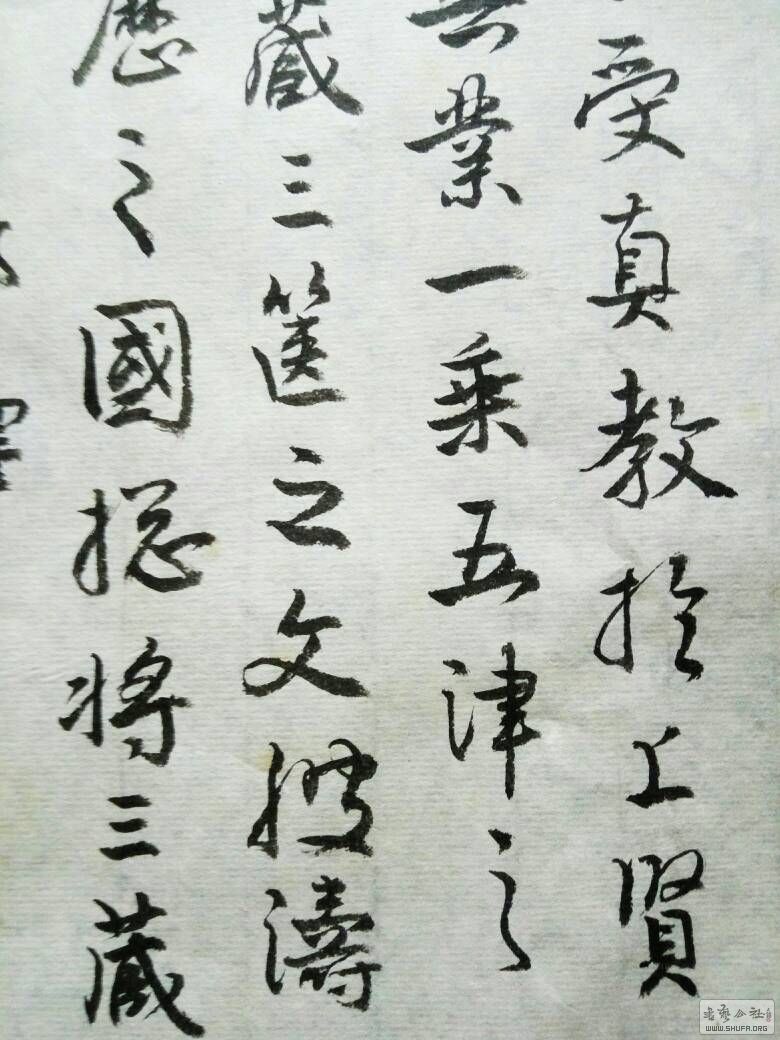 受真教於上賢
業一乘五律之
藏三篋之文波濤
歷之國揔將三藏
書藝公社
WWW.SHUFA.ORG